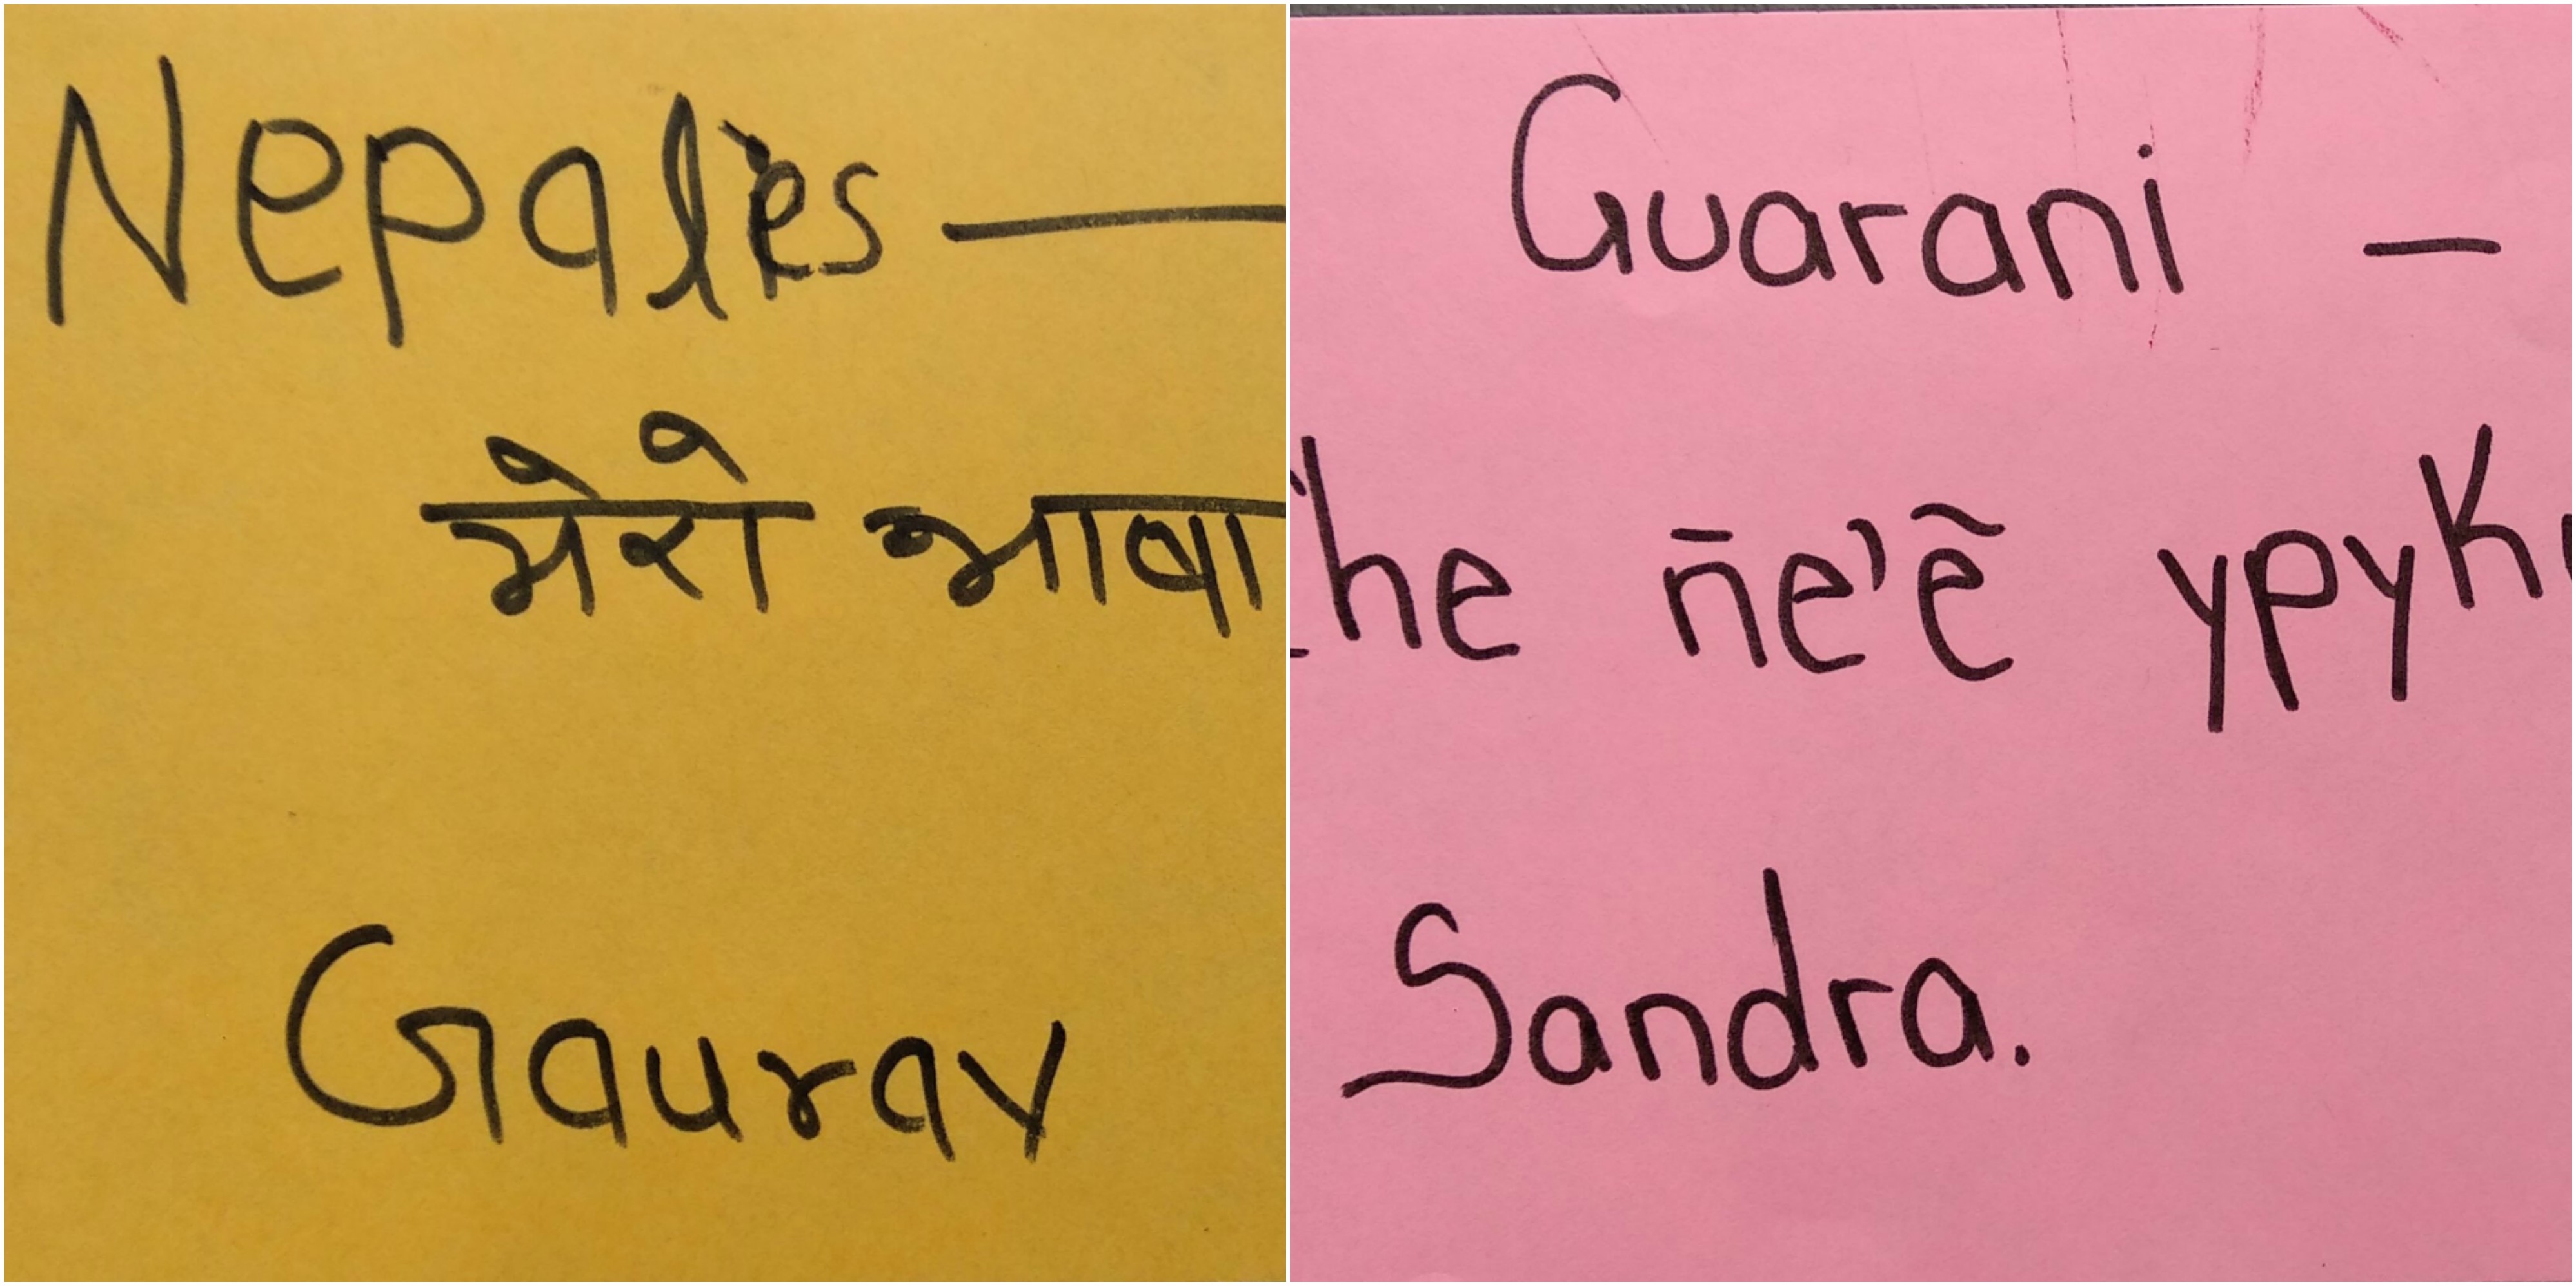 Nepalés —
मेरो भाषा
Gaurav
Guarani —
he ñe'ẽ ypyk
Sandra.